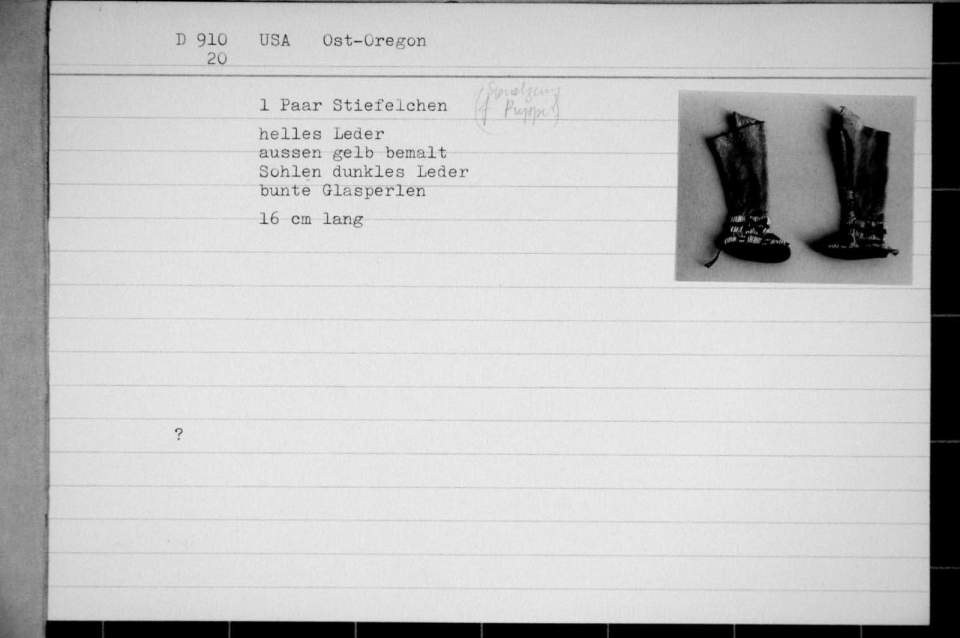 D 910 USA Ost-Oregon
20
1 Paar Stiefelchen
helles Leder
aussen gelb bemalt
Sohlen dunkles Leder
bunte Glasperlen
16 cm lang
?